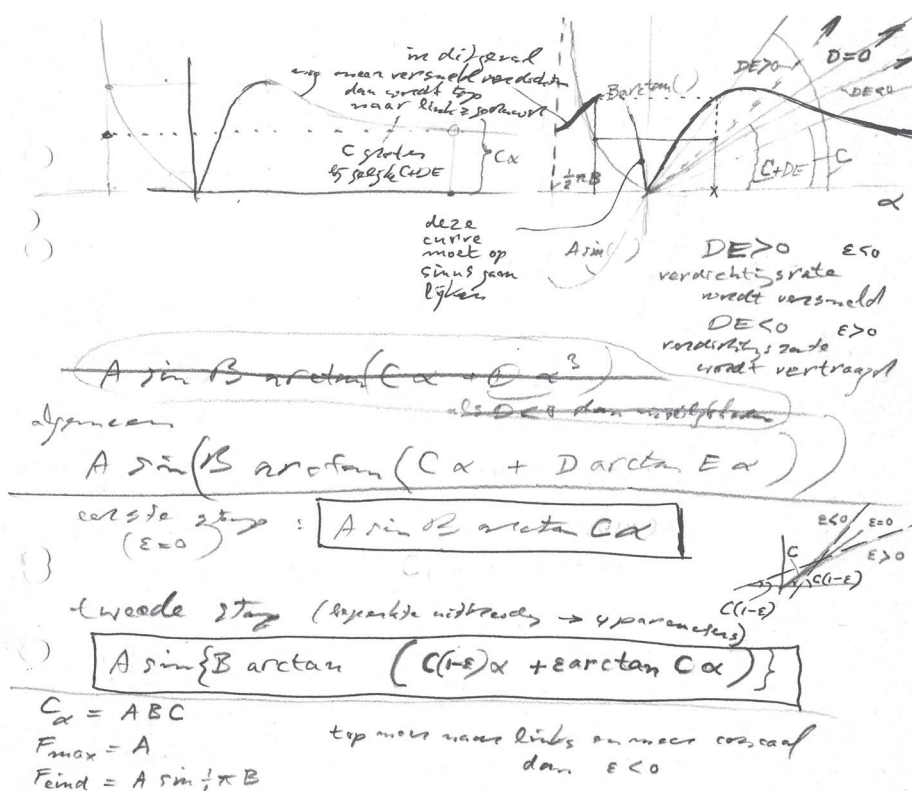 in dit geval
nog meer versneld verdichten
dan wordt top
naar links
Barctan( )
DE>0
D=0
DE<0
C groter
bij gelijke C+DE
Cα
½πB
x
C+DE
C
α
deze
curve
moet op
sinus gaan
lijken
A sin( )
DE>0 ε<0
verdichtingsrate
wordt versneld
DE<0 ε>0
verdichtingsrate
wordt vertraagd
A sin B arctan(Cα + D α³)
als D<0 dan
algemeen
A sin(B arctan(Cα + D arctan Eα))
eerste stap :
(ε=0)
A sin B arctan Cα
ε<0
ε=0
ε>0
C
C(1-ε)
C(1-ε)
tweede stap (beperkte uitbreiding → 4 parameters)
A sin{B arctan (C(1-ε)α + ε arctan Cα)}
Cα = ABC
Fmax = A
Feind = A sin ½πB
top meer naar links en meer
dan ε<0